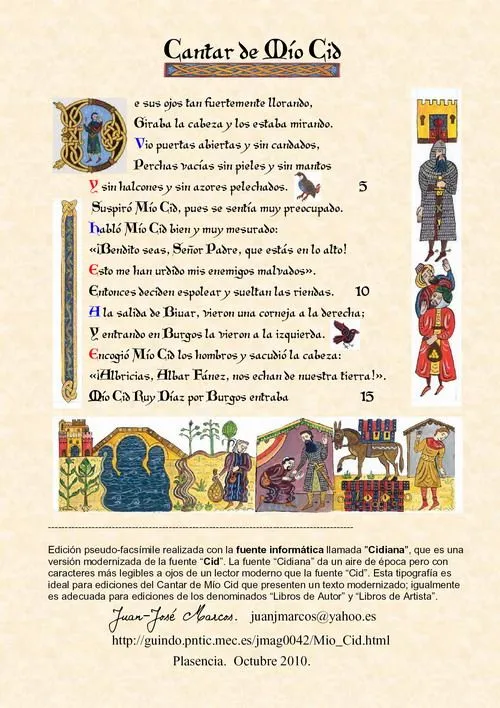 Cantar de Mío Cid
De sus ojos tan fuertemente llorando,
Giraba la cabeza y los estaba mirando.
Vio puertas abiertas y sin candados,
Perchas vacías sin pieles y sin mantos
Y sin halcones y sin azores pelechados. 5
Suspiró Mío Cid, pues se sentía muy preocupado.
Habló Mío Cid bien y muy mesurado:
«¡Bendito seas, Señor Padre, que estás en lo alto!
Esto me han urdido mis enemigos malvados».
Entonces deciden espolear y sueltan las riendas. 10
A la salida de Bivar, vieron una corneja a la derecha;
Y entrando en Burgos la vieron a la izquierda.
Encogió Mío Cid los hombros y sacudió la cabeza:
«¡Albricias, Albar Fánez, nos echan de nuestra tierra!».
Mío Cid Ruy Díaz por Burgos entraba 15
Edición pseudo-facsímile realizada con la fuente informática llamada "Cidiana", que es una
versión modernizada de la fuente “Cid”. La fuente “Cidiana” da un aire de época pero con
caracteres más legibles a ojos de un lector moderno que la fuente “Cid”. Esta tipografía es
ideal para ediciones del Cantar de Mío Cid que presenten un texto modernizado; igualmente
es adecuada para ediciones de los denominados “Libros de Autor” y “Libros de Artista”.
Juan-José Marcos. juanjmarcos@yahoo.es
http://guindo.pntic.mec.es/jmag0042/Mio_Cid.html
Plasencia. Octubre 2010.